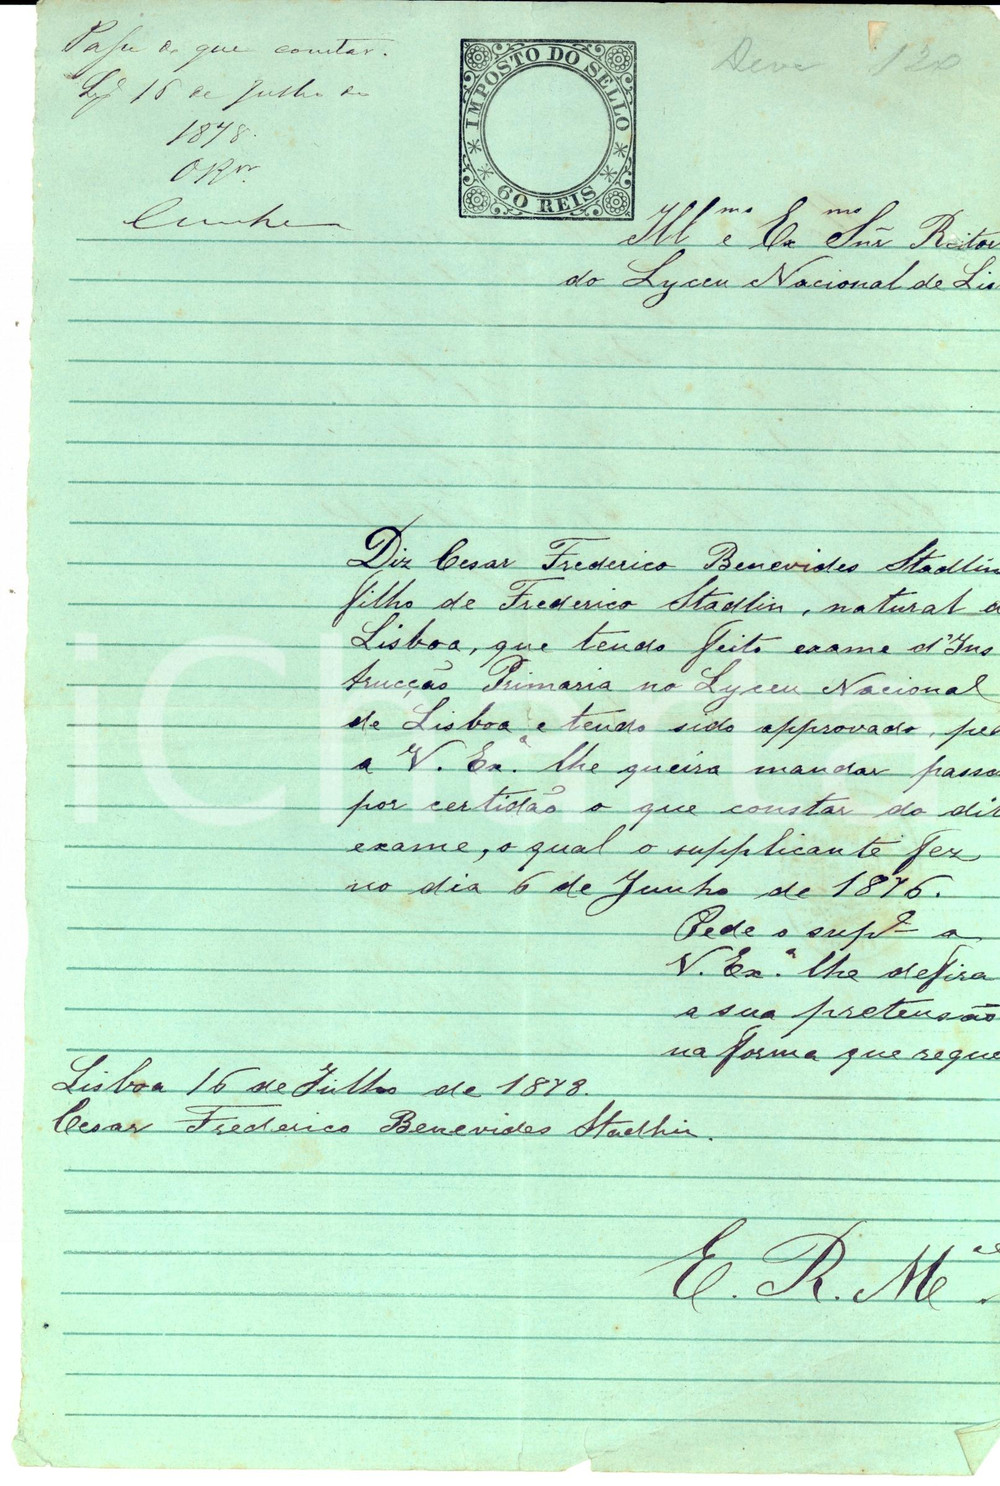 Passe do que constar.
Lxª 16 de Julho de
1878.
O Ror.
Cunha
IMPOSTO DO SELLO
60 REIS
Deve 120
Illmo e Exmo Snr Reitor
do Lyceu Nacional de Lis
Diz Cesar Frederico Benevides Stadlin
filho de Frederico Stadlin, natural d
Lisboa, que tendo feito exame d'Ins
trucção Primaria no Lyceu Nacional
de Lisboa e tendo sido approvado, ped
a V. Exª. lhe queira mandar passa
por certidão o que constar do dit
exame, o qual o supplicante fez
no dia 6 de Junho de 1876.
Pede o supe a
V. Exª. lhe defira
a sua pretensão
na forma que reque
Lisboa 16 de Julho de 1878.
Cesar Frederico Benevides Stadlin.
E. R. Mce
iCharta